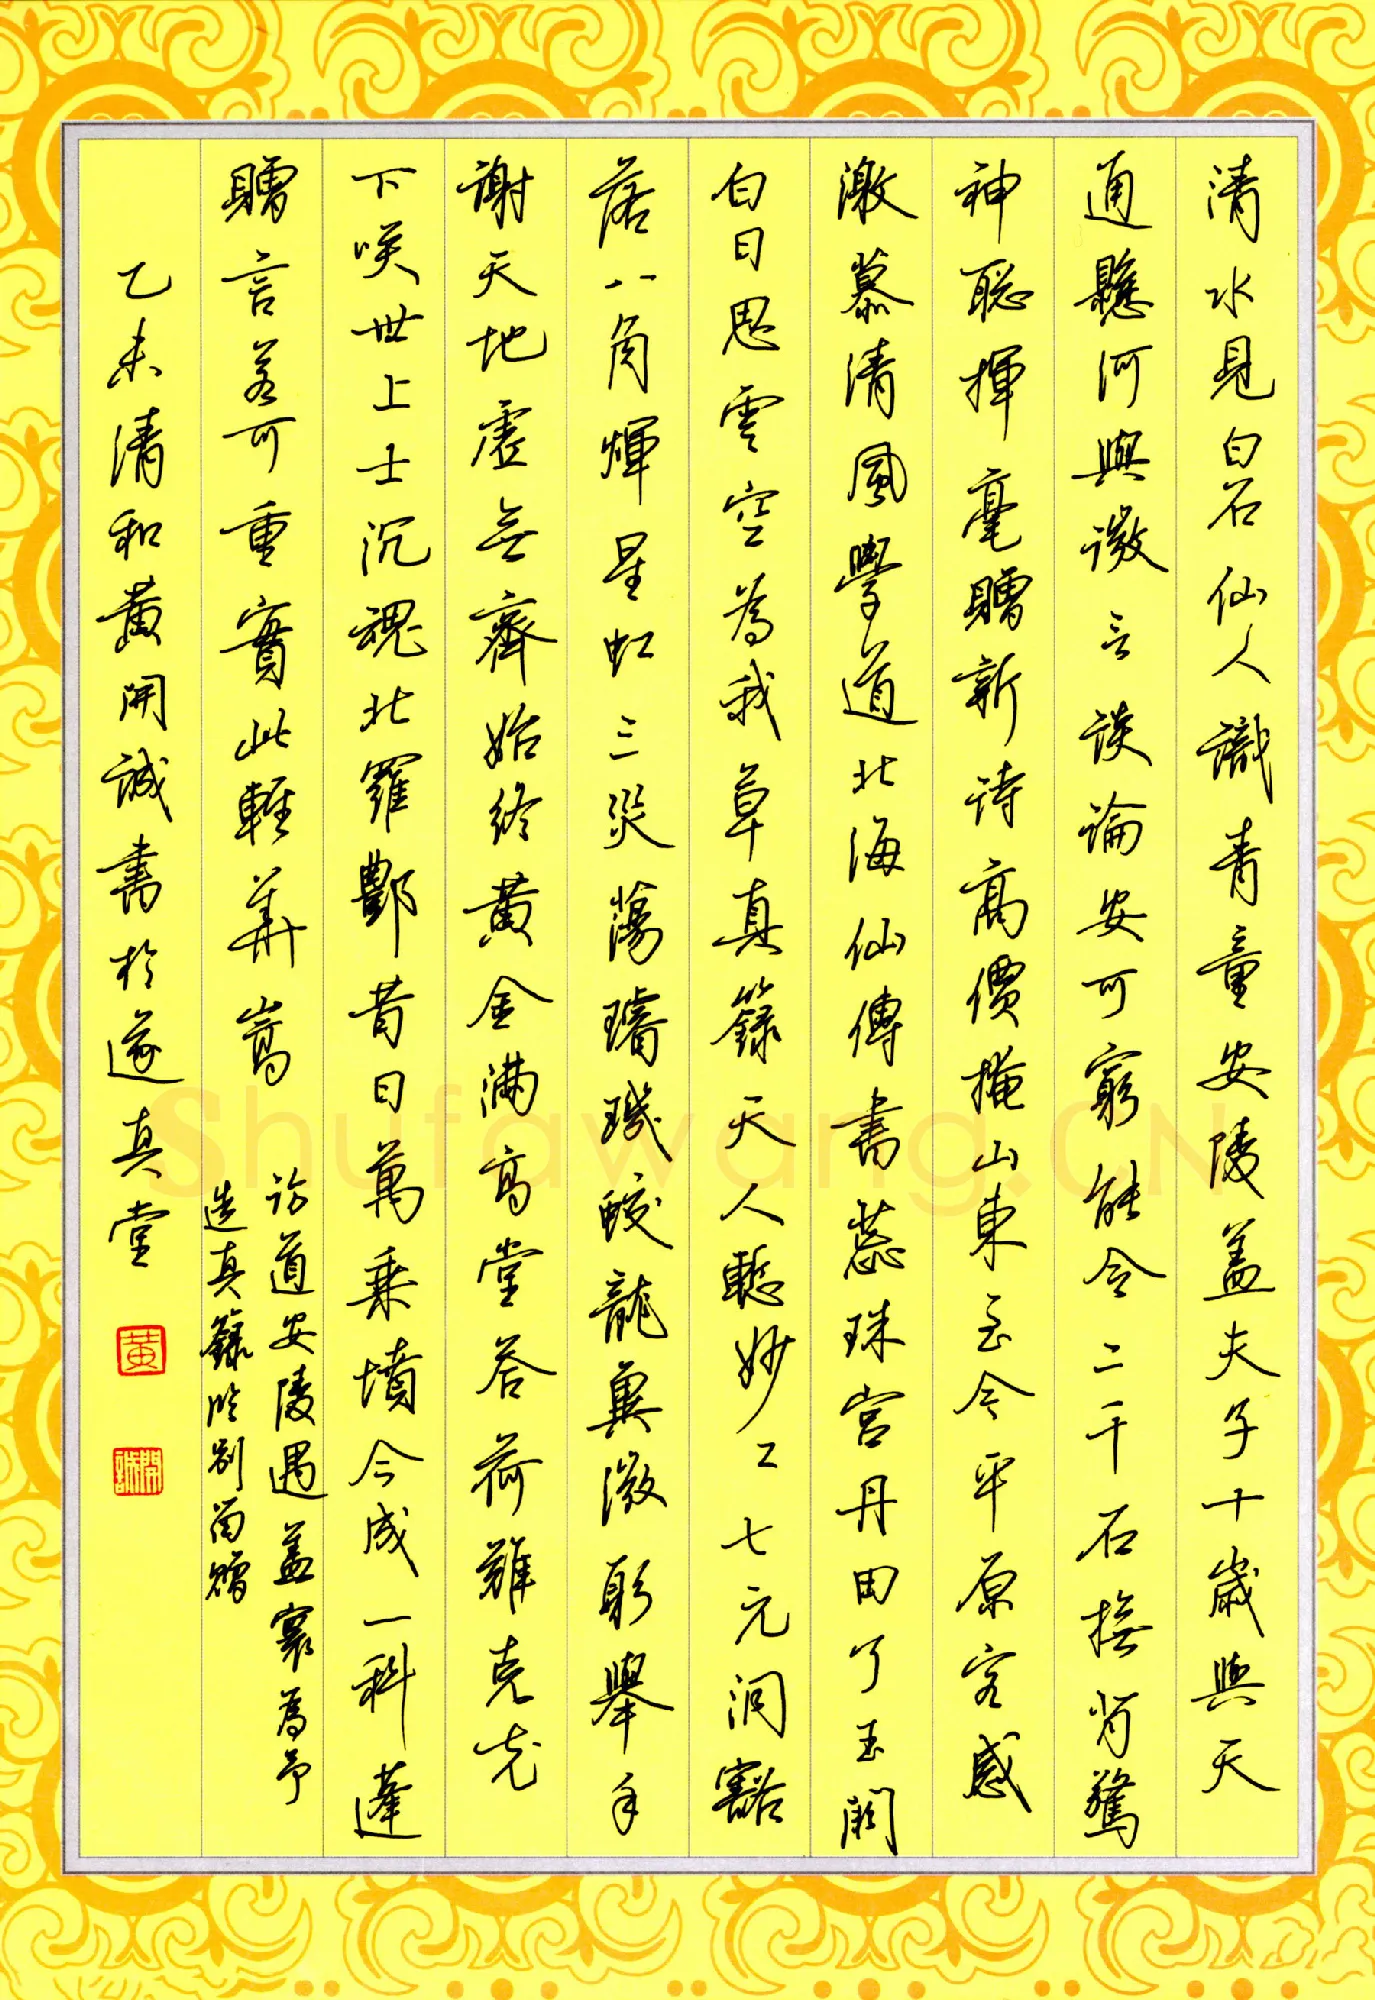 清水見白石仙人識青童安陵蓋夫子十歲與天
通懸河與微言談論安可窮能令二千石撫背驚
神聡揮毫贈新诗高價掩山東至今平原客感
激慕清風學道北海仙傳書蕊珠宮丹田了玉闕
白日思雲空為我草真籙天人慙妙工七元洞豁
落八角輝星虹三災蕩璿璣蛟龍翼微躬舉手
謝天地虛無齊始終黃金滿高堂荅荷難克充
下咲世上士沉魂北羅酆昔日萬乘墳今成一科蓬
贈言若可重實此輕華嵩
訪道安陵遇蓋寰為予
造真籙臨别留贈
乙未清和黃開誠書於遂真堂
黃
開誠
Shufawang.CN